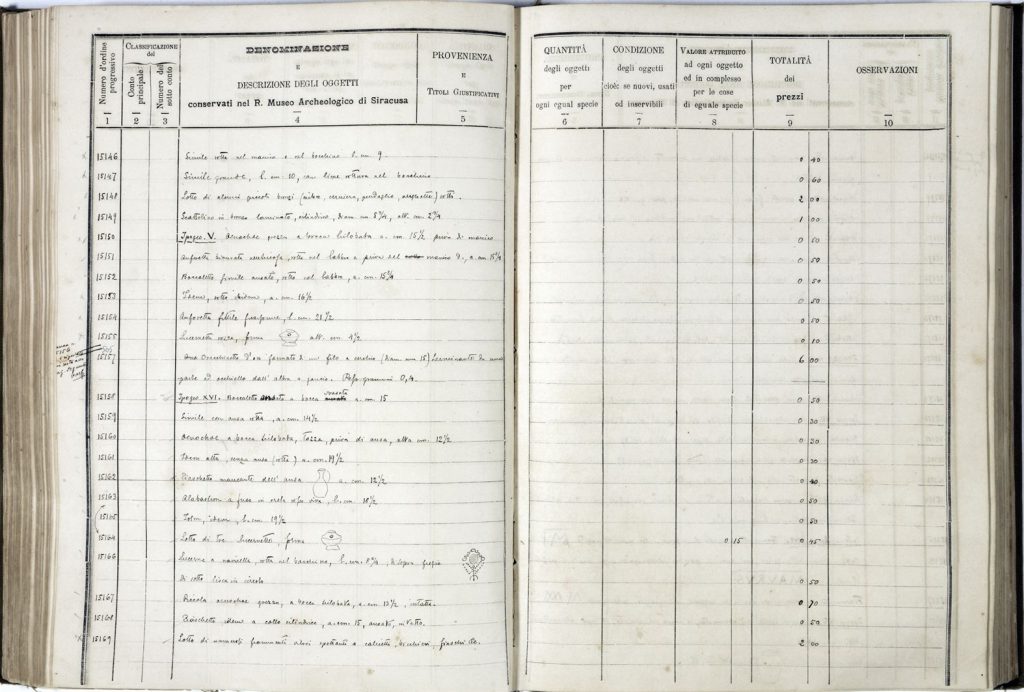 Numero d'ordine progressivo
CLASSIFICAZIONE
del
Conto principale
Numero del sotto conto
DENOMINAZIONE
E
DESCRIZIONE DEGLI OGGETTI
conservati nel R. Museo Archeologico di Siracusa
PROVENIENZA
E
TITOLI GIUSTIFICATIVI
1 2 3 4 5
QUANTITÀ
degli oggetti
per
ogni egual specie
6
CONDIZIONE
degli oggetti
cioè: se nuovi, usati
od inservibili
7
VALORE ATTRIBUITO
ad ogni oggetto
ed in complesso
per le cose
di eguale specie
8
TOTALITÀ
dei
prezzi
9
OSSERVAZIONI
10
15146 Simile rotta nel manico e nel becchino l. cm. 9 0 40
15147 Simile grande, l. cm. 10, con lieve rottura nel becchino 0 60
15148 Lotto di alcuni piccoli bronzi (fibbia, cerniera, pendaglio, rotti. 2 00
15149 Scattolino in bronzo laminato, cilindrico, diam. cm. 5 3/4, alt. cm. 2 3/4 1 00
15150 Ipogeo V. Oenochoe grezza a bocca trilobata a. cm. 15 1/2 priva di manico 0 50
15151 rotta nel labbro e priva del manico a. cm. 0 50
15152 Boccaletto simile ansato, rotto nel labbro, a. cm. 15 3/4 0 50
15153 Idem, rotto idem, a. cm. 16 1/2 0 50
15154 Anforetta fittile l. cm. 21 1/2 0 50
15155 Lucernetta rozza, forma alt. cm. 4 1/2 0 10
15157 Una Orecchinetto d'oro formato di un filo a cerchio (diam. mm 15) mancante da una 6 00
parte ed occhiello dall'altra a gancio. Peso grammi 0,4.
15158 Ipogeo XVI. Boccaletto a bocca a. cm. 15 0 50
15159 Simile con ansa rotta, a. cm. 14 1/2 0 30
15160 Oenochoe a bocca trilobata, rozza, priva di ansa, alta cm. 12 1/2 0 30
15161 Idem alta, senza ansa (rotta) a. cm. 19 1/2 0 30
15162 Fiaschetto mancante dell'ansa a. cm. 12 1/2 0 40
15163 Alabastron a fuso in creta l. cm. 18 1/2 0 50
15165 Idem, idem, l. cm. 19 1/2 0 50
15164 Lotto di tre lucernette forma 0 15 0 45
15166 Lucerna a navicella, rotta nel becchino, l. cm. di sopra fregio
di sotto lisca in circolo 0 50
15167 Piccola oenochoe grezza, a bocca trilobata, a. cm. 13 1/2, intatta. 0 70
15168 Fiaschetto idem a collo cilindrico, a. cm. 15, ansato, intatto. 0 50
15169 Lotto di numerosi frammenti vitrei spettanti a calicetti, bicchieri, fiaschi &c. 2 00